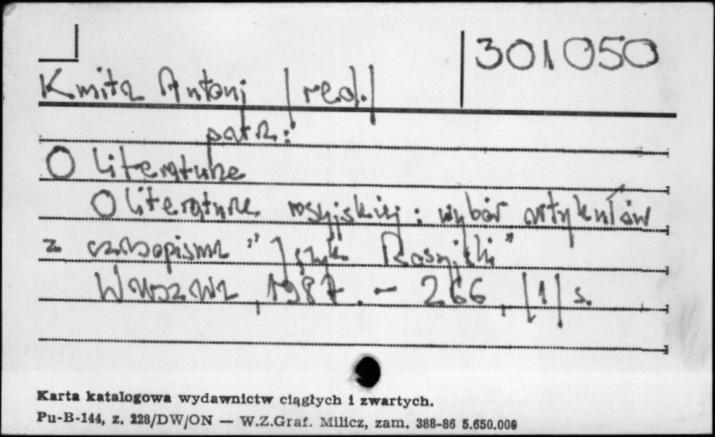 301050
Kmita Antoni [red.]
patrz:
O literaturze
O literaturze rosyjskiej : wybór artykułów
z czasopisma "Język Rosyjski"
Warszawa, 1987. - 266, [1] s.
Karta katalogowa wydawnictw ciągłych i zwartych.
Pu-B-144, z. 228/DW/ON — W.Z.Graf. Milicz, zam. 388-86 5.650.000